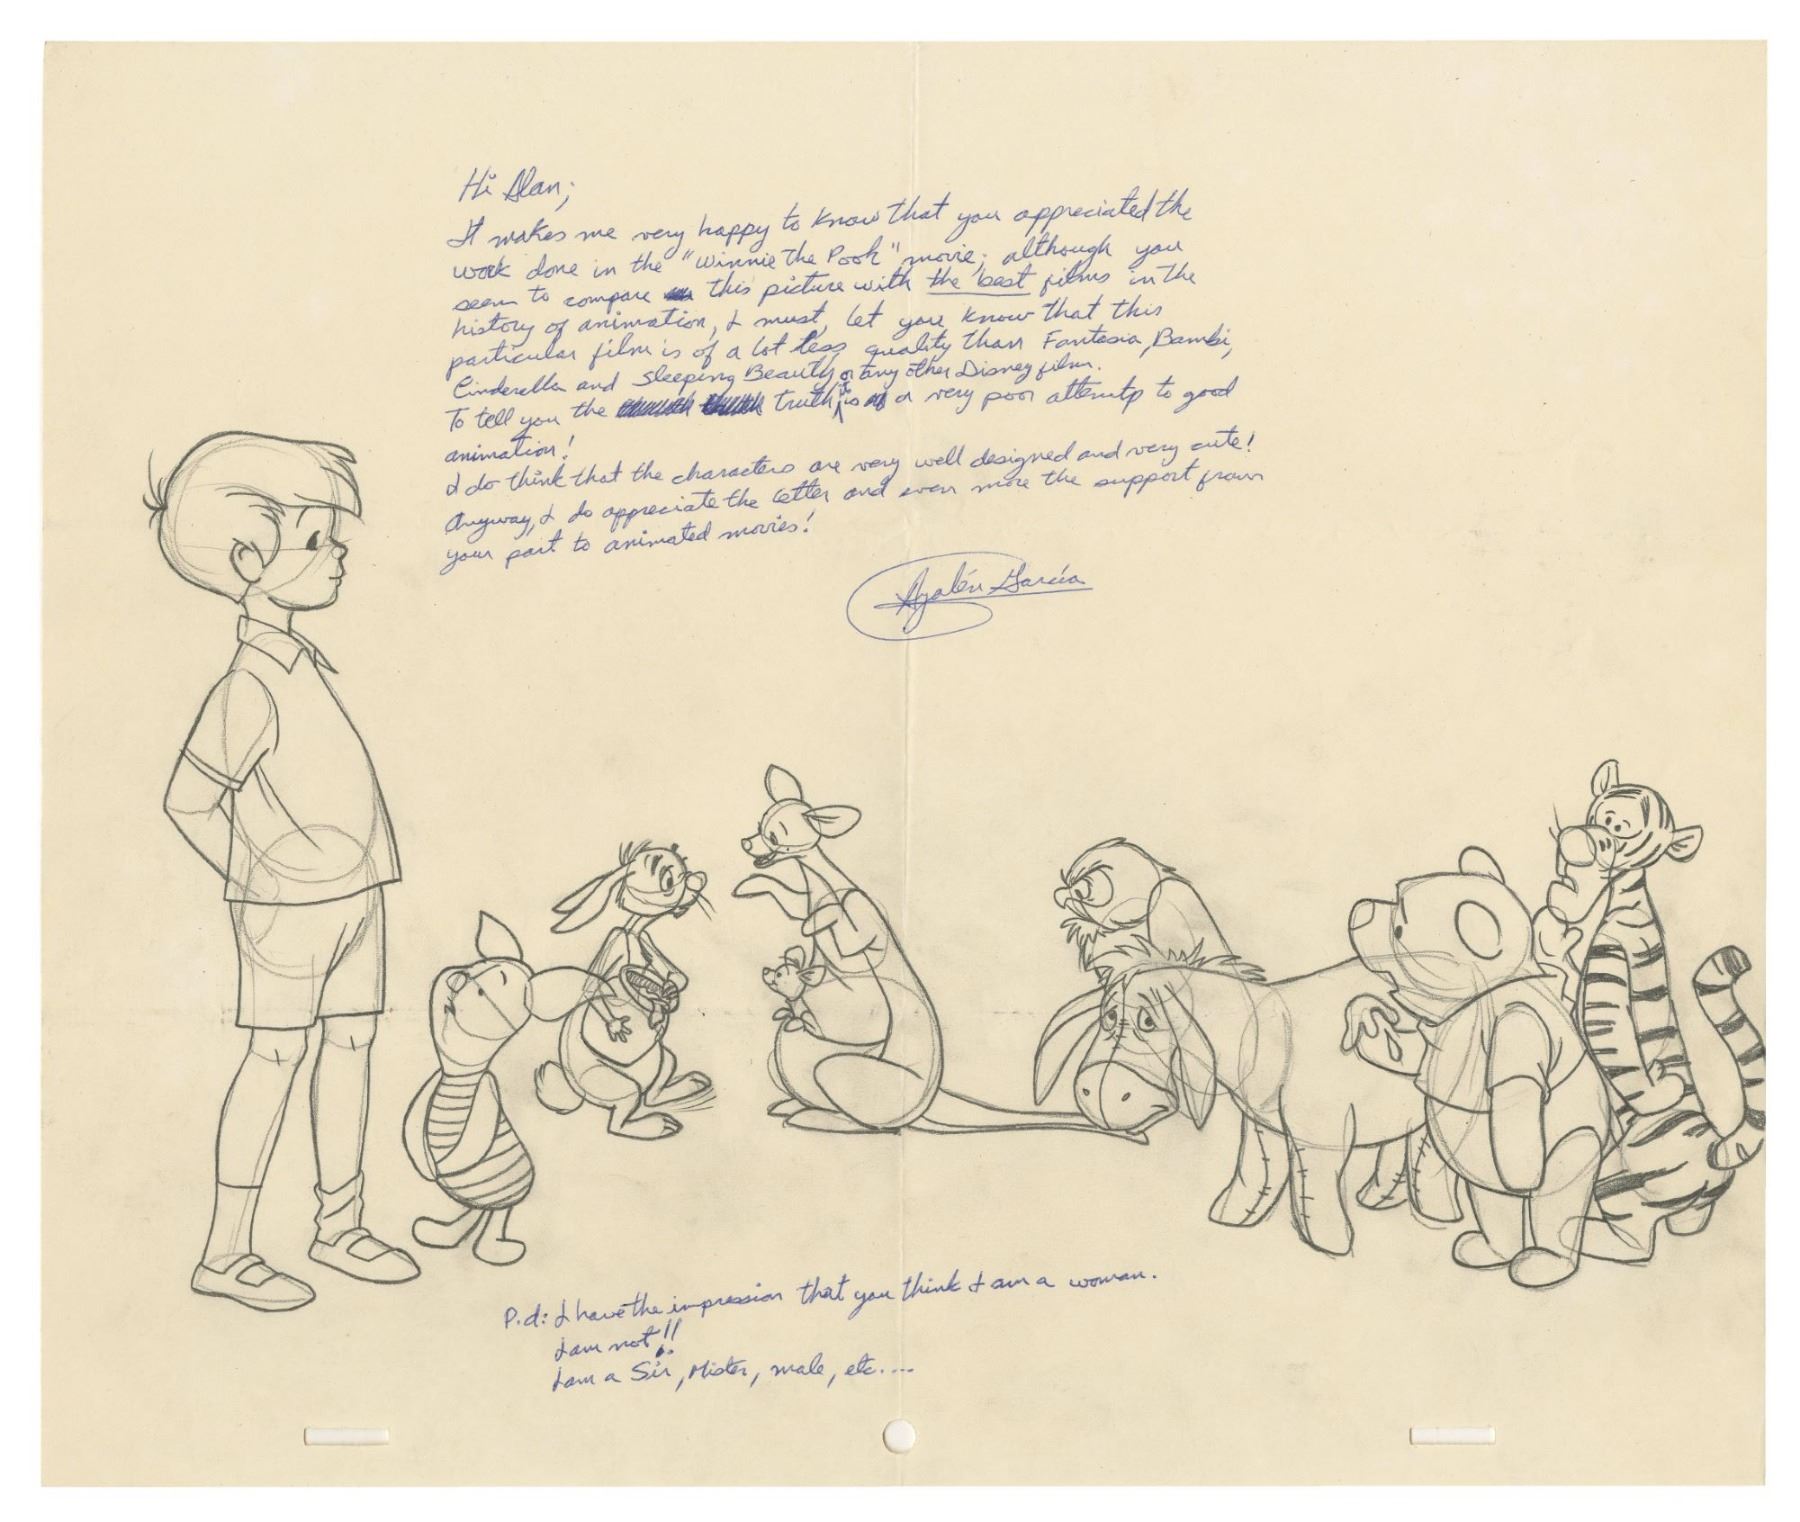 Hi Alan;
It makes me very happy to know that you appreciated the
work done in the "Winnie the Pooh" movie; although you
seem to compare this picture with the best films in the
history of animation, I must, let you know that this
particular film is of a lot less quality than Fantasia, Bambi,
Cinderella and Sleeping Beauty or any other Disney film.
To tell you the truth it is a very poor attemtp to good
animation!
I do think that the characters are very well designed and very cute!
Anyway, I do appreciate the letter and even more the support from
your part to animated movies!
García
P.d: I have the impression that you think I am a woman.
I am not!!
I am a Sir, Mister, male, etc....